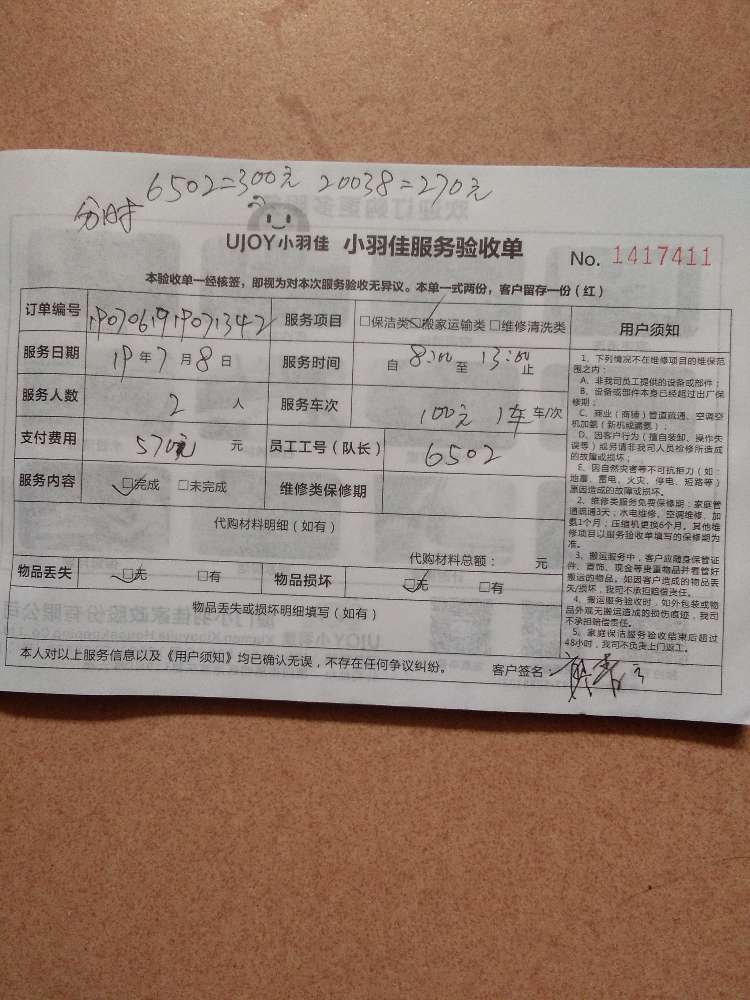 分时 6502=300元 20038=270元
UJOY小羽佳 小羽佳服务验收单 No. 1417411
本验收单一经核签，即视为对本次服务验收无异议。本单一式两份，客户留存一份（红）
订单编号 服务项目 □保洁类□搬家运输类□维修清洗类
服务日期 19年7月8日 服务时间 自 8:00 至 13:00 止
服务人数 2 人 服务车次 100元 1车 车/次
支付费用 570元 元 员工工号（队长） 6502
服务内容 □完成 □未完成 维修类保修期
代购材料明细（如有）
代购材料总额： 元
物品丢失 □无 □有 物品损坏 □无 □有
物品丢失或损坏明细填写（如有）
本人对以上服务信息以及《用户须知》均已确认无误，不存在任何争议纠纷。 客户签名：
用户须知
1、下列情况不在维修项目的维保范
围之内：
A、非我司员工提供的设备或部件；
B、设备或部件本身已经超过出厂保
修期；
C、商业（商铺）管道疏通、空调空
机加氨（新机或漏氨）；
D、因客户行为（擅自装卸、操作失
误等）或另请非我司人员检修所造成
的故障或损坏；
E、因自然灾害等不可抗拒力（如：
地震、雷电、火灾、停电、短路等）
原因造成的故障或损坏。
2、维修类服务免费保修期：家庭管
道疏通3天；水电维修、空调维修、加
氨1个月；压缩机更换6个月。其他维
修项目以服务验收单填写的保修期为
准。
3、搬运服务中，客户应随身保管证
件、首饰、现金等贵重物品并看管好
搬运的物品。如因客户造成的物品丢
失/损坏，我司不承担赔偿责任。
4、搬运服务验收时，如外包装或物
品外观无搬运造成的损伤痕迹，我司
不承担赔偿责任。
5、家庭保洁服务验收结束后超过
48小时，我司不负责上门返工。